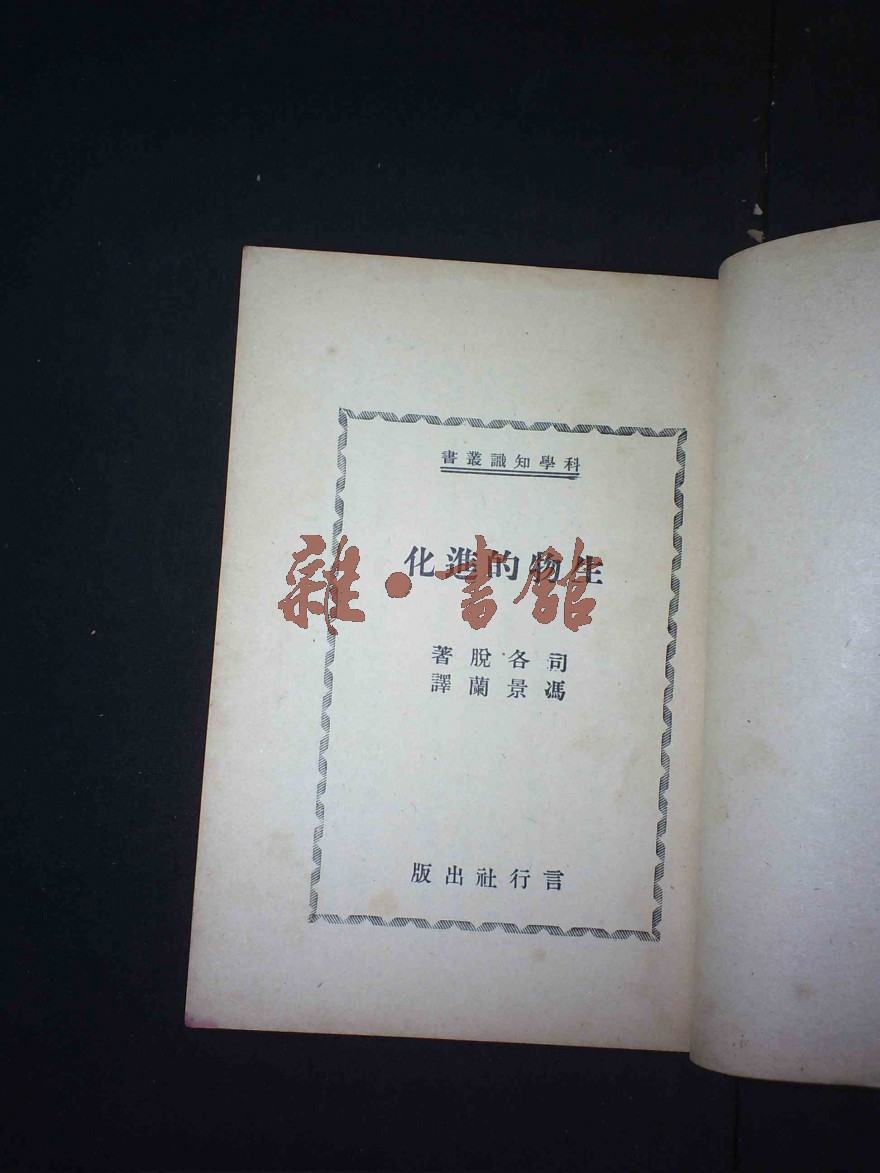 科學知識叢書
生物的進化
雜·書館
司各脫著
馮景蘭譯
言行社出版